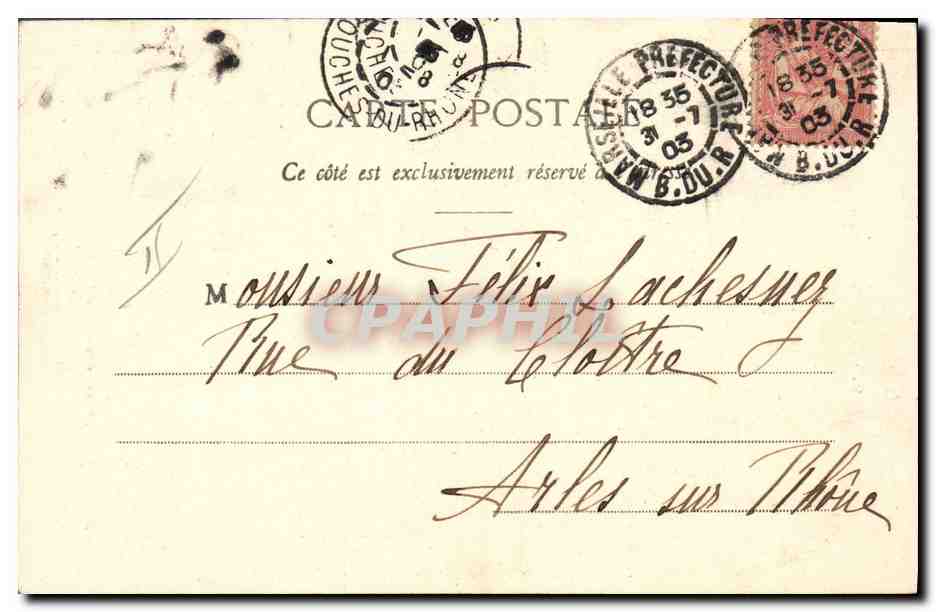 BOUCHES-DU-RHONE
MARSEILLE PREFECTURE
18 35
31 -7
03
B. DU. R.
PREFECTURE
18 35
31 -7
03
B. DU. R.
CARTE POSTALE
Ce côté est exclusivement réservé à
II
Monsieur Félix Lachesnez
CPAPHIL
Rue du Cloître
Arles sur Rhône